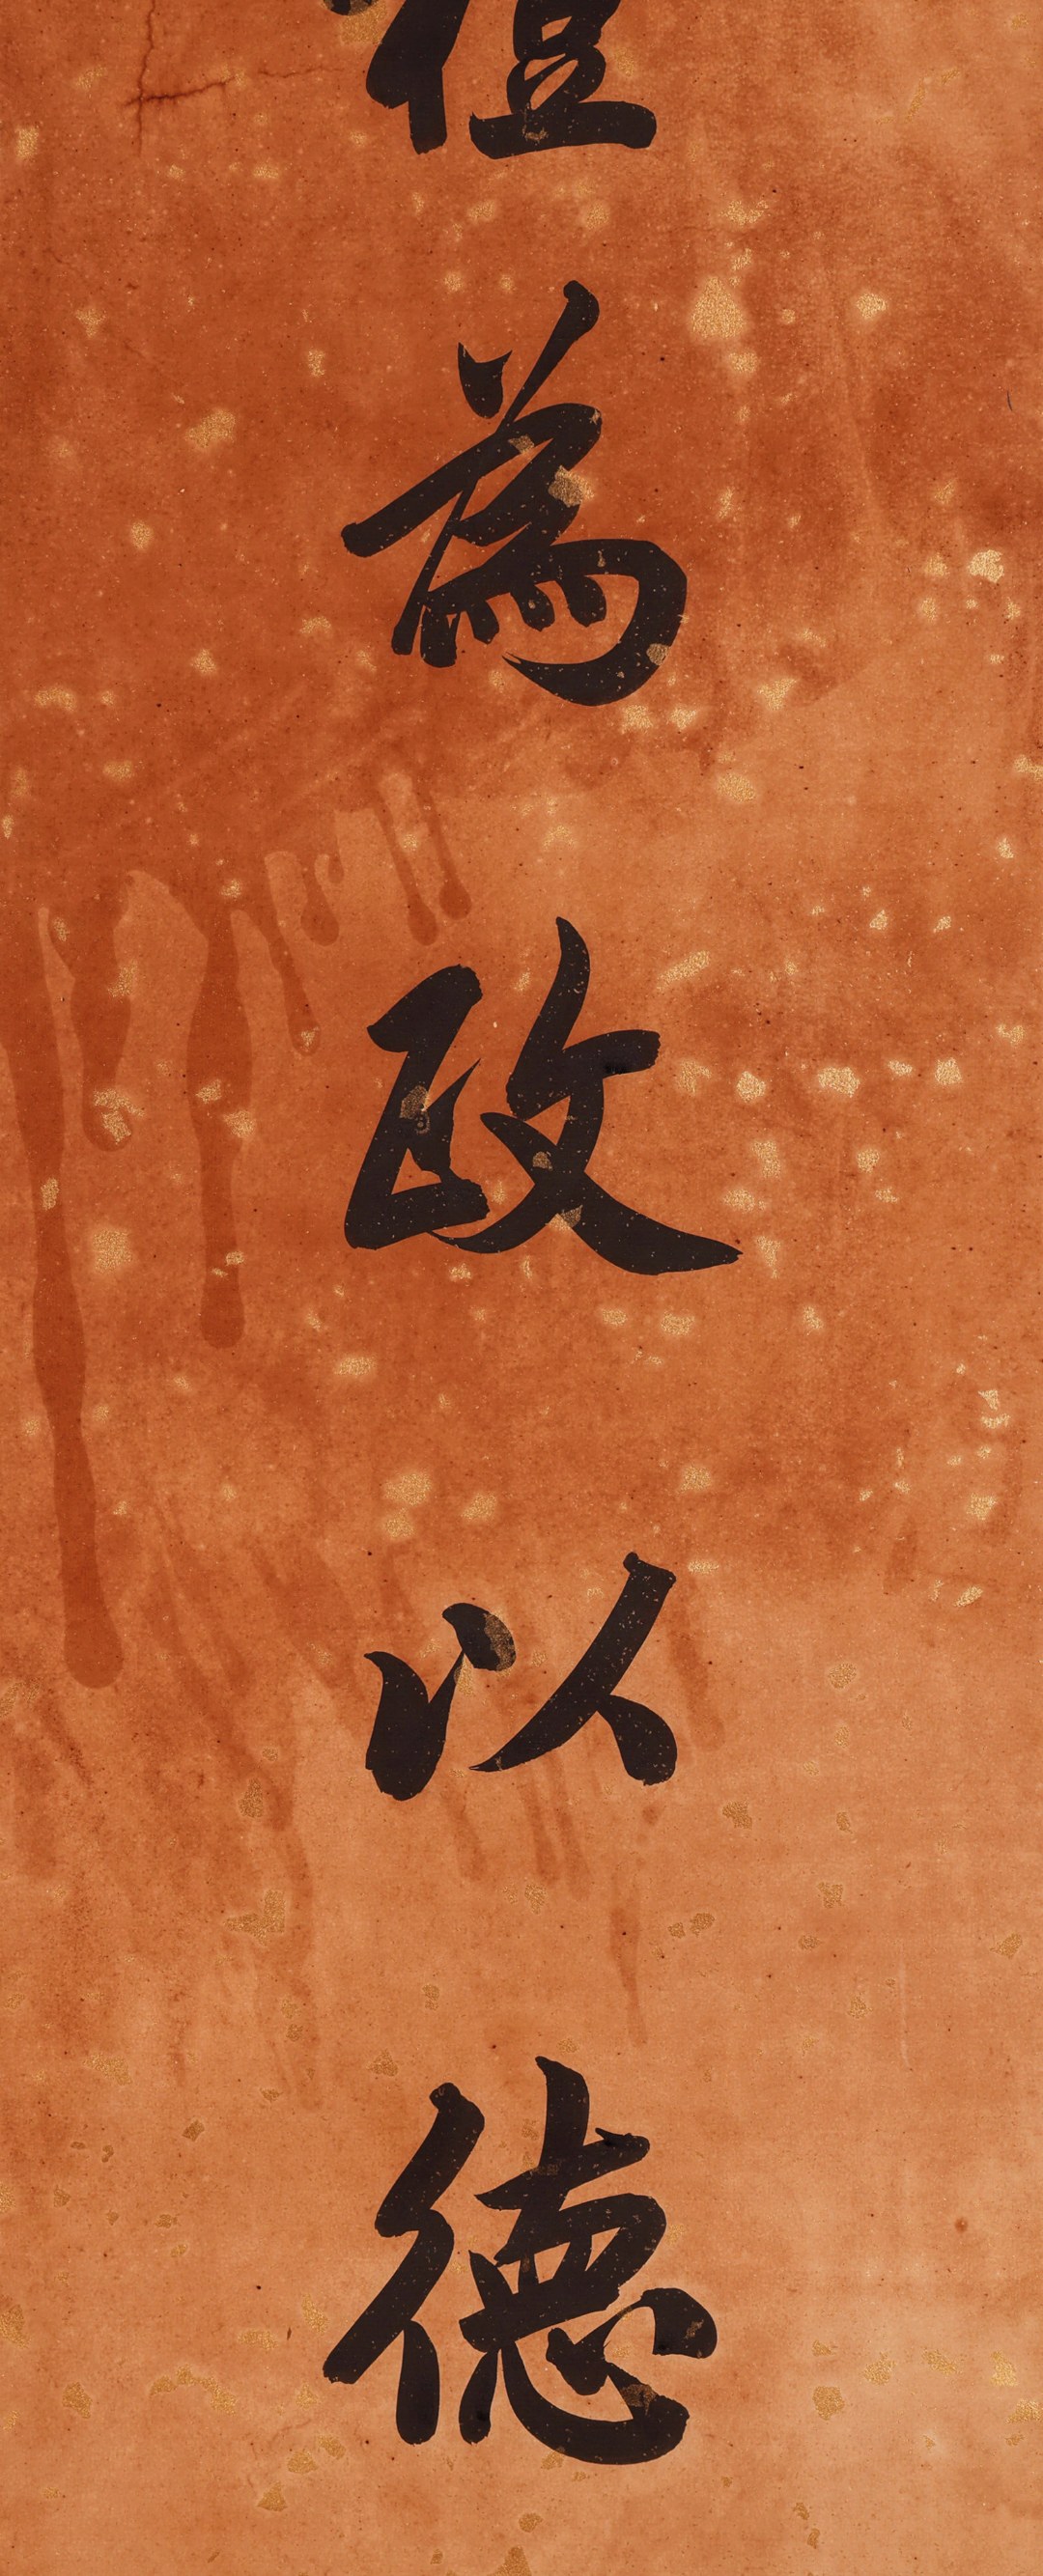 為政以德